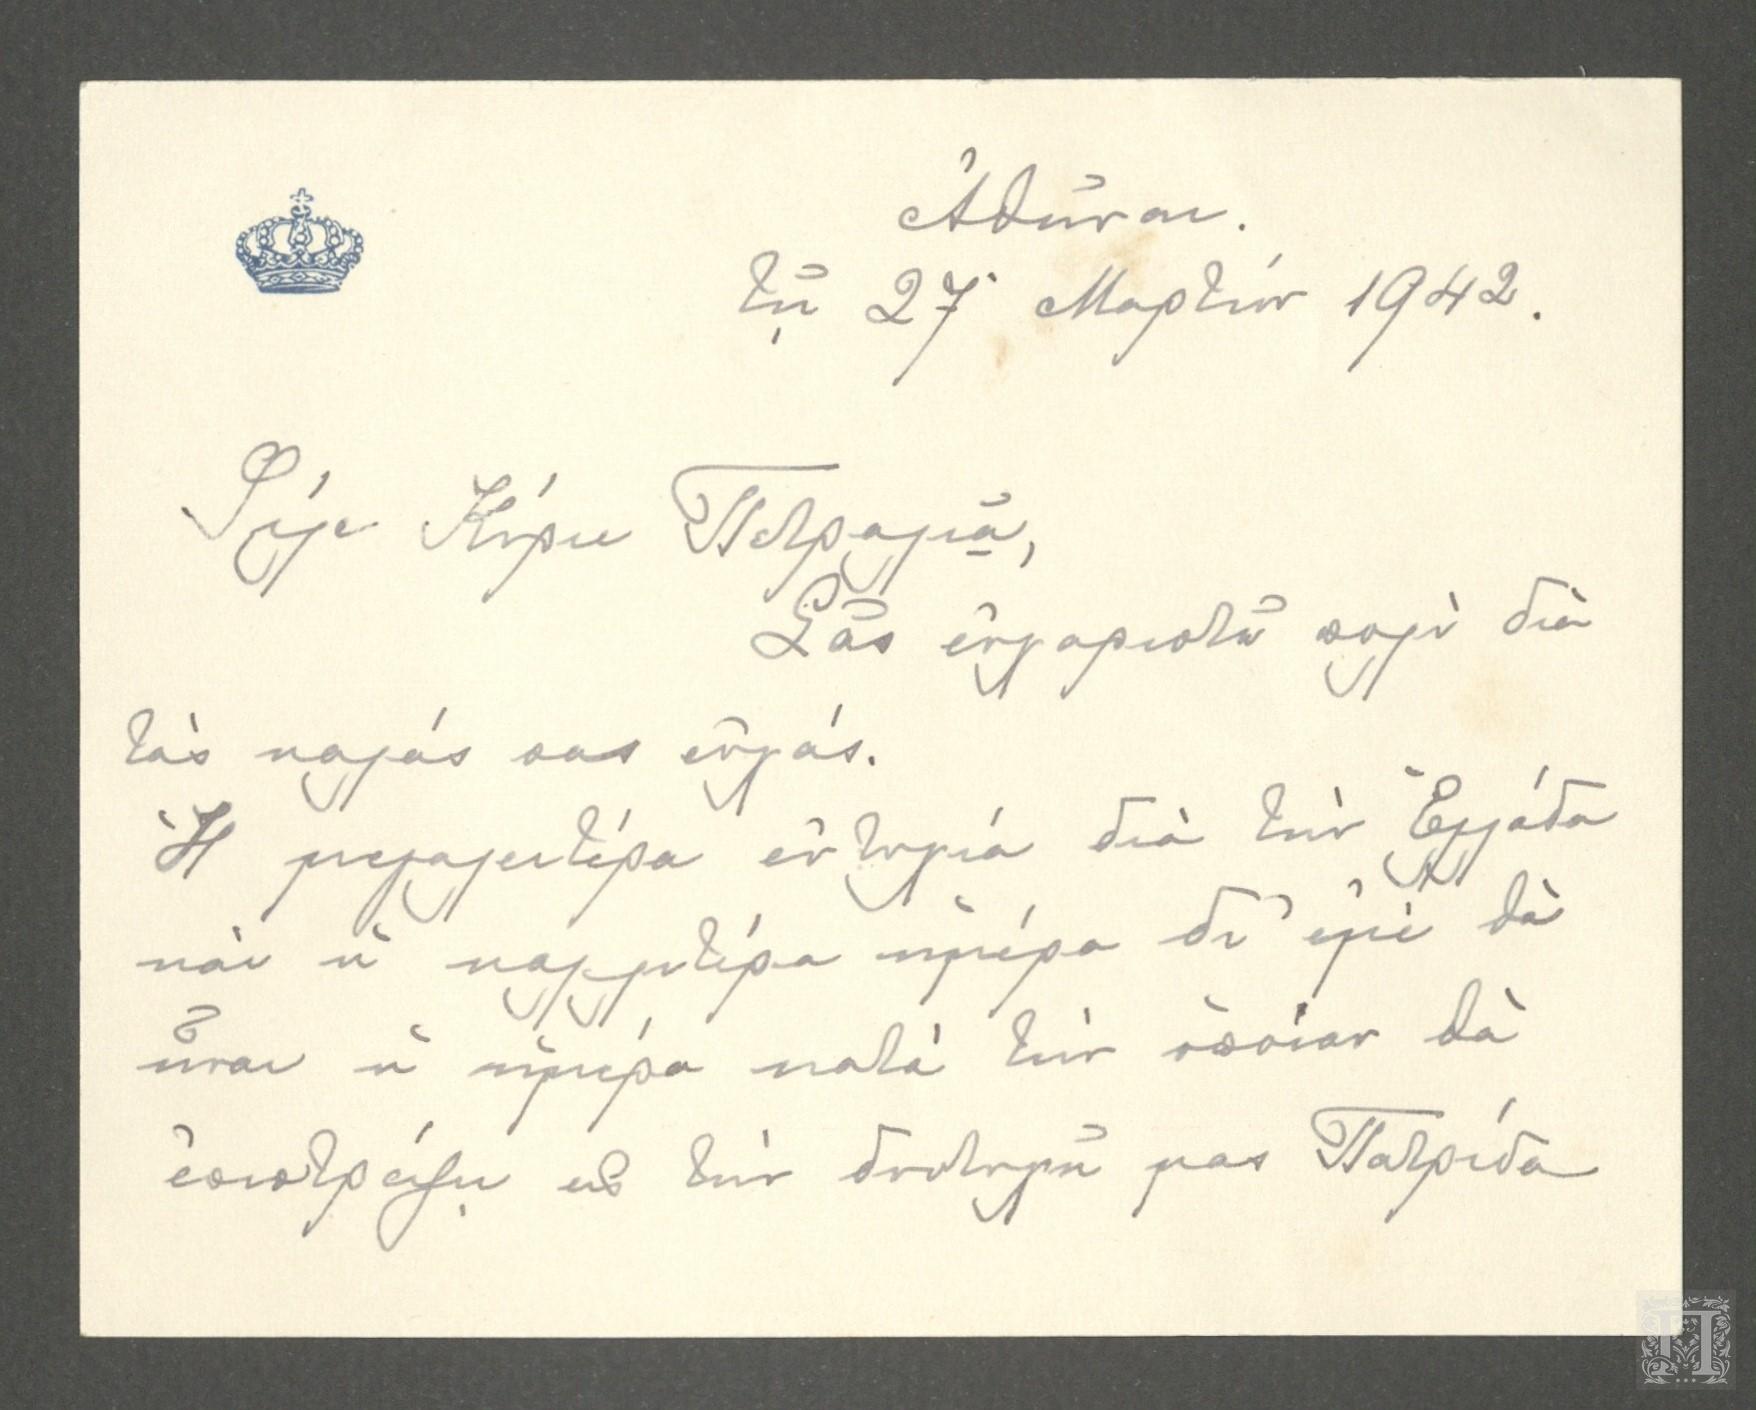 Ἀθῆναι.
τῇ 27 Μαρτίου 1942.
Φίλε Κύριε Πετραλιᾶ,
Σᾶς εὐχαριστῶ πολὺ διὰ
τὰς καλάς σας εὐχάς.
Ἡ μεγαλειτέρα εὐτυχία διὰ τὴν Ἑλλάδα
καὶ ἡ καλλιτέρα ἡμέρα δι' ἐμὲ θὰ
ἦναι ἡ ἡμέρα κατὰ τὴν ὁποίαν θὰ
ἐπιστρέψῃ εἰς τὴν δυστυχῆ μας Πατρίδα